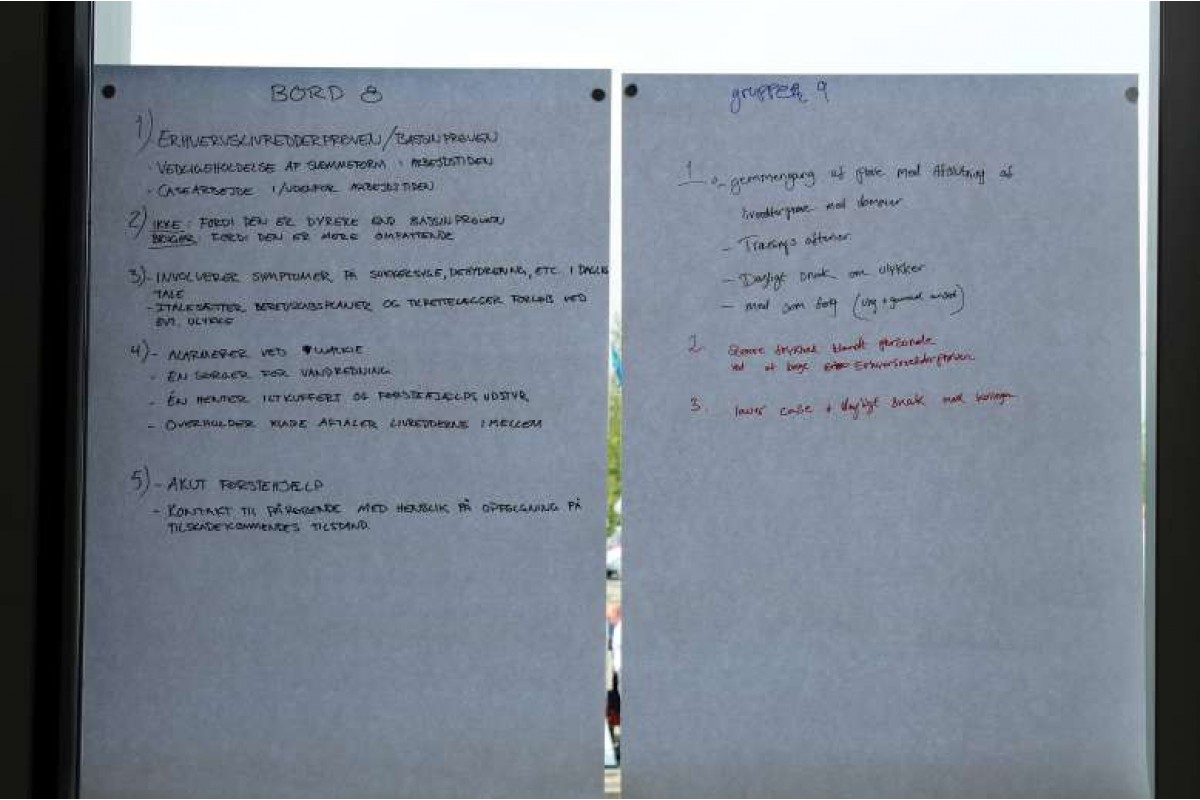 BORD 8
1) ERHVERVSLIVREDDERPRØVEN/BASSINPRØVEN
· VEDLIGEHOLDELSE AF SVØMMEFORM I ARBEJDSTIDEN
· CASEARBEJDE I/UDENFOR ARBEJDSTIDEN
2) IKKE: FORDI DEN ER DYRERE END BASSINPRØVEN
BRUGER: FORDI DEN ER MERE OMFATTENDE
3) - INVOLVERER SYMPTOMER PÅ SUKKERSYGE, DEHYDRERING, ETC. I DAGLIG
TALE
- ITALESÆTTER BEREDSKABSPLANER OG TILRETTELÆGGER FORLØB VED
EVT. ULYKKE
4) - ALARMERER VED WALKIE
- ÉN SØRGER FOR VANDREDNING
- ÉN HENTER ILTKUFFERT OG FØRSTEHJÆLPS UDSTYR
- OVERHOLDER KLARE AFTALER LIVREDDERNE IMELLEM
5) - AKUT FØRSTEHJÆLP
- KONTAKT TIL PÅRØRENDE MED HENBLIK PÅ OPFØLGNING PÅ
TILSKADEKOMMENDES TILSTAND.
gruppe 9
1 - gennemgang af prøve med Afslutning af
livredderprøve med
- Trænings aftener
- Dagligt snak om ulykker
- med som følg (ung + gammel ansat)
2. Større tryghed blandt personale
ved at bruge Erhvervslivredderprøven
3. laver case + dagligt snak med